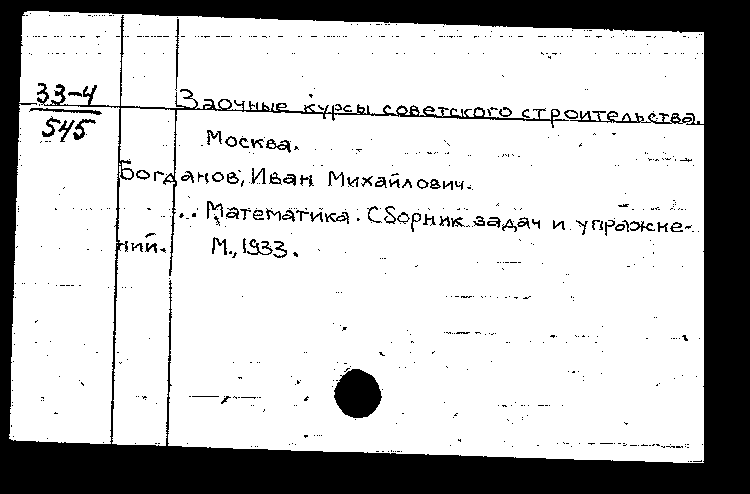 33-4
545
Заочные курсы советского строительства.
Москва.
Богданов, Иван Михайлович.
.. Математика. Сборник задач и упражне-
ний. М., 1933.